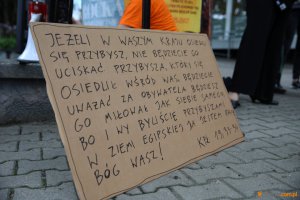 JEŻELI W WASZYM KRAJU OSIEDLI
SIĘ PRZYBYSZ, NIE BĘDZIECIE GO
UCISKAĆ. PRZYBYSZA, KTÓRY SIĘ
OSIEDLIŁ WŚRÓD WAS, BĘDZIECIE
UWAŻAĆ ZA OBYWATELA. BĘDZIESZ
GO MIŁOWAŁ JAK SIEBIE SAMEGO,
BO I WY BYLIŚCIE PRZYBYSZAMI
W ZIEMI EGIPSKIEJ. JA JESTEM PAN,
BÓG WASZ! KPŁ 19,33-34